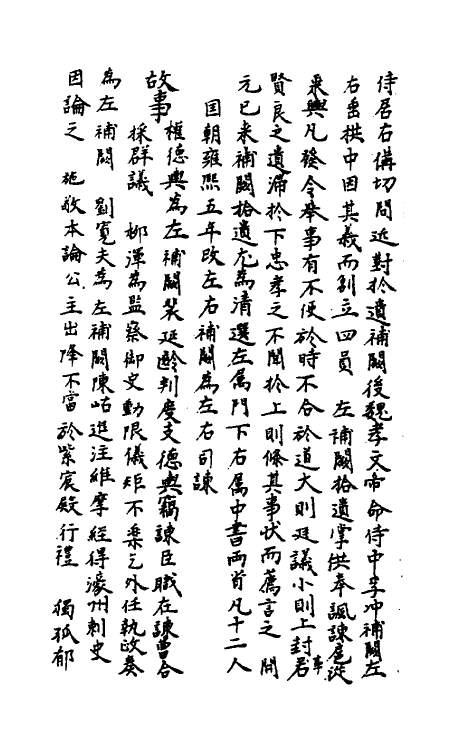 侍居右備切問近對拾遺補闕後魏孝文帝命侍中李冲補闕左
右垂拱中因其義而創立四員　左補闕拾遺掌供奉諷諫扈從
乗輿凡發令舉事有不便於時不合於道大則廷議小則上封若
賢良之遺滯於下忠孝之不聞於上則條其事状而薦言之　開
元已来補闕拾遺尤為清選左属門下右属中書両省凡十二人
国朝雍熙五年改左右補闕為左右司諫
故事　權德輿為左補闕裴延齡判度支德輿諫臣職在諫曹合
採群議　柳渾為監察御史動限儀矩不樂乞外任執政奏
為左補闕　劉寛夫為左補闕陳岵進注維摩經得濠州刺史
因論之　施敬本論公主出降不當於紫宸殿行禮　獨孤郁